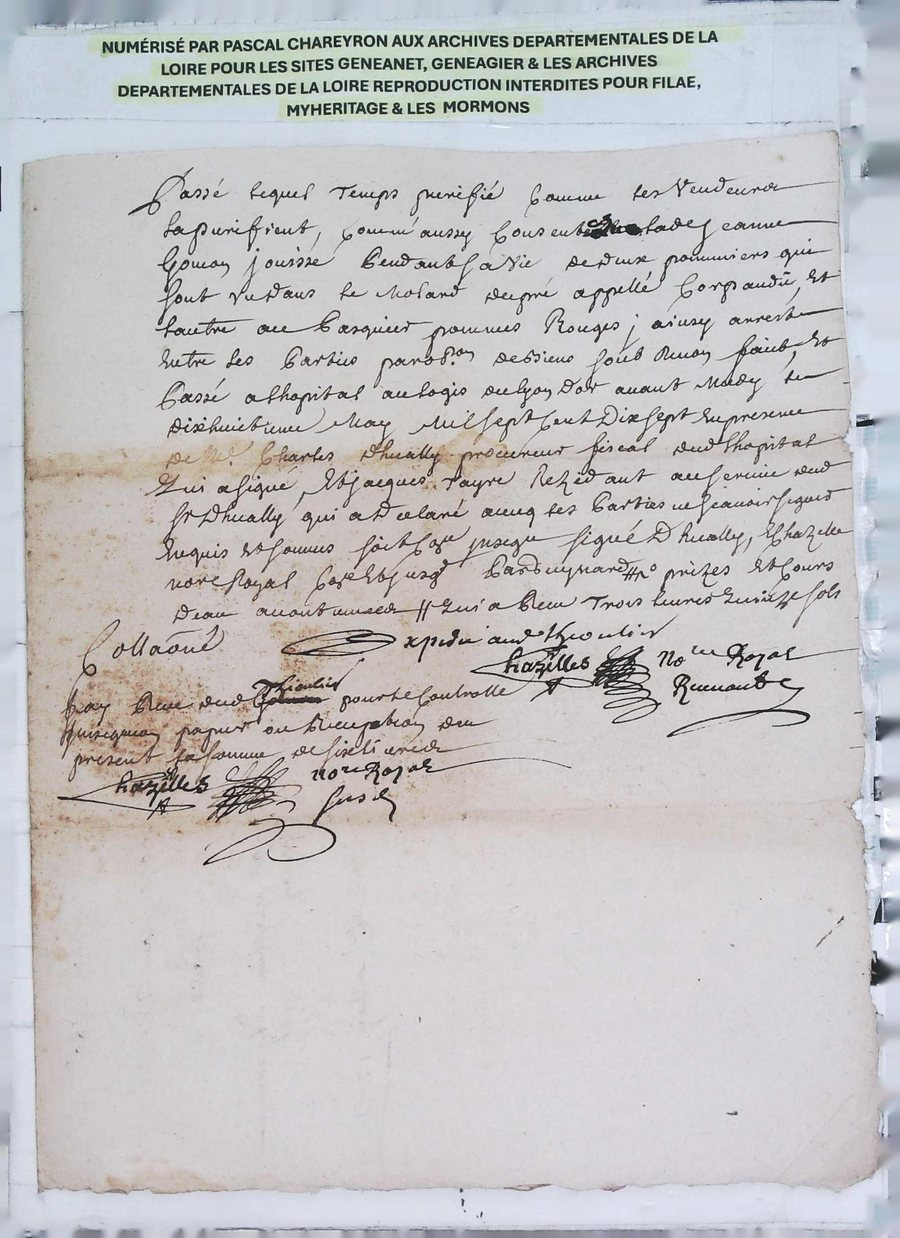 NUMÉRISÉ PAR PASCAL CHAREYRON AUX ARCHIVES DEPARTEMENTALES DE LA
LOIRE POUR LES SITES GENEANET, GENEAGIER & LES ARCHIVES
DEPARTEMENTALES DE LA LOIRE REPRODUCTION INTERDITES POUR FILAE,
MYHERITAGE & LES MORMONS
Passé lequel Temps purifié Comme les Vendeurs
La purifient, Comm'aussy Consent lade Jeanne
Jouisse Pendant sa Vie de deux pommiers qui
sont Vn dans le Molard du pré appellé Corpandü, Et
Lautre au Pasquier pommes Rouges; ainsy arresté
Entre les Parties dessieus faict, Et
Passé a Lhopital au Logis du Lyon Dor auant Midy le
dixhuictieme May Mil Sept Cent Dix Sept En presence
de Me. Charles Dhually procureur fiscal dud Lhopital
Qui a signé, Et Jacques Fayre Rezidant au seruice dud
Sr Dhually qui a Declaré auecq les Parties ne scauoir signer
Enquis Et sommés signé Dhually, Chazelle
nore Royal prizes Et Cours
Deau // Qui a Receu Trois Liures Quinze Sols
Collaōné Expedié aud Thioulier
Chazelles Nore Royal
Jay Receu dud Thioulier pour le Controlle
papier ou Reception du
present la somme de six liures
Chazelles nore Royal